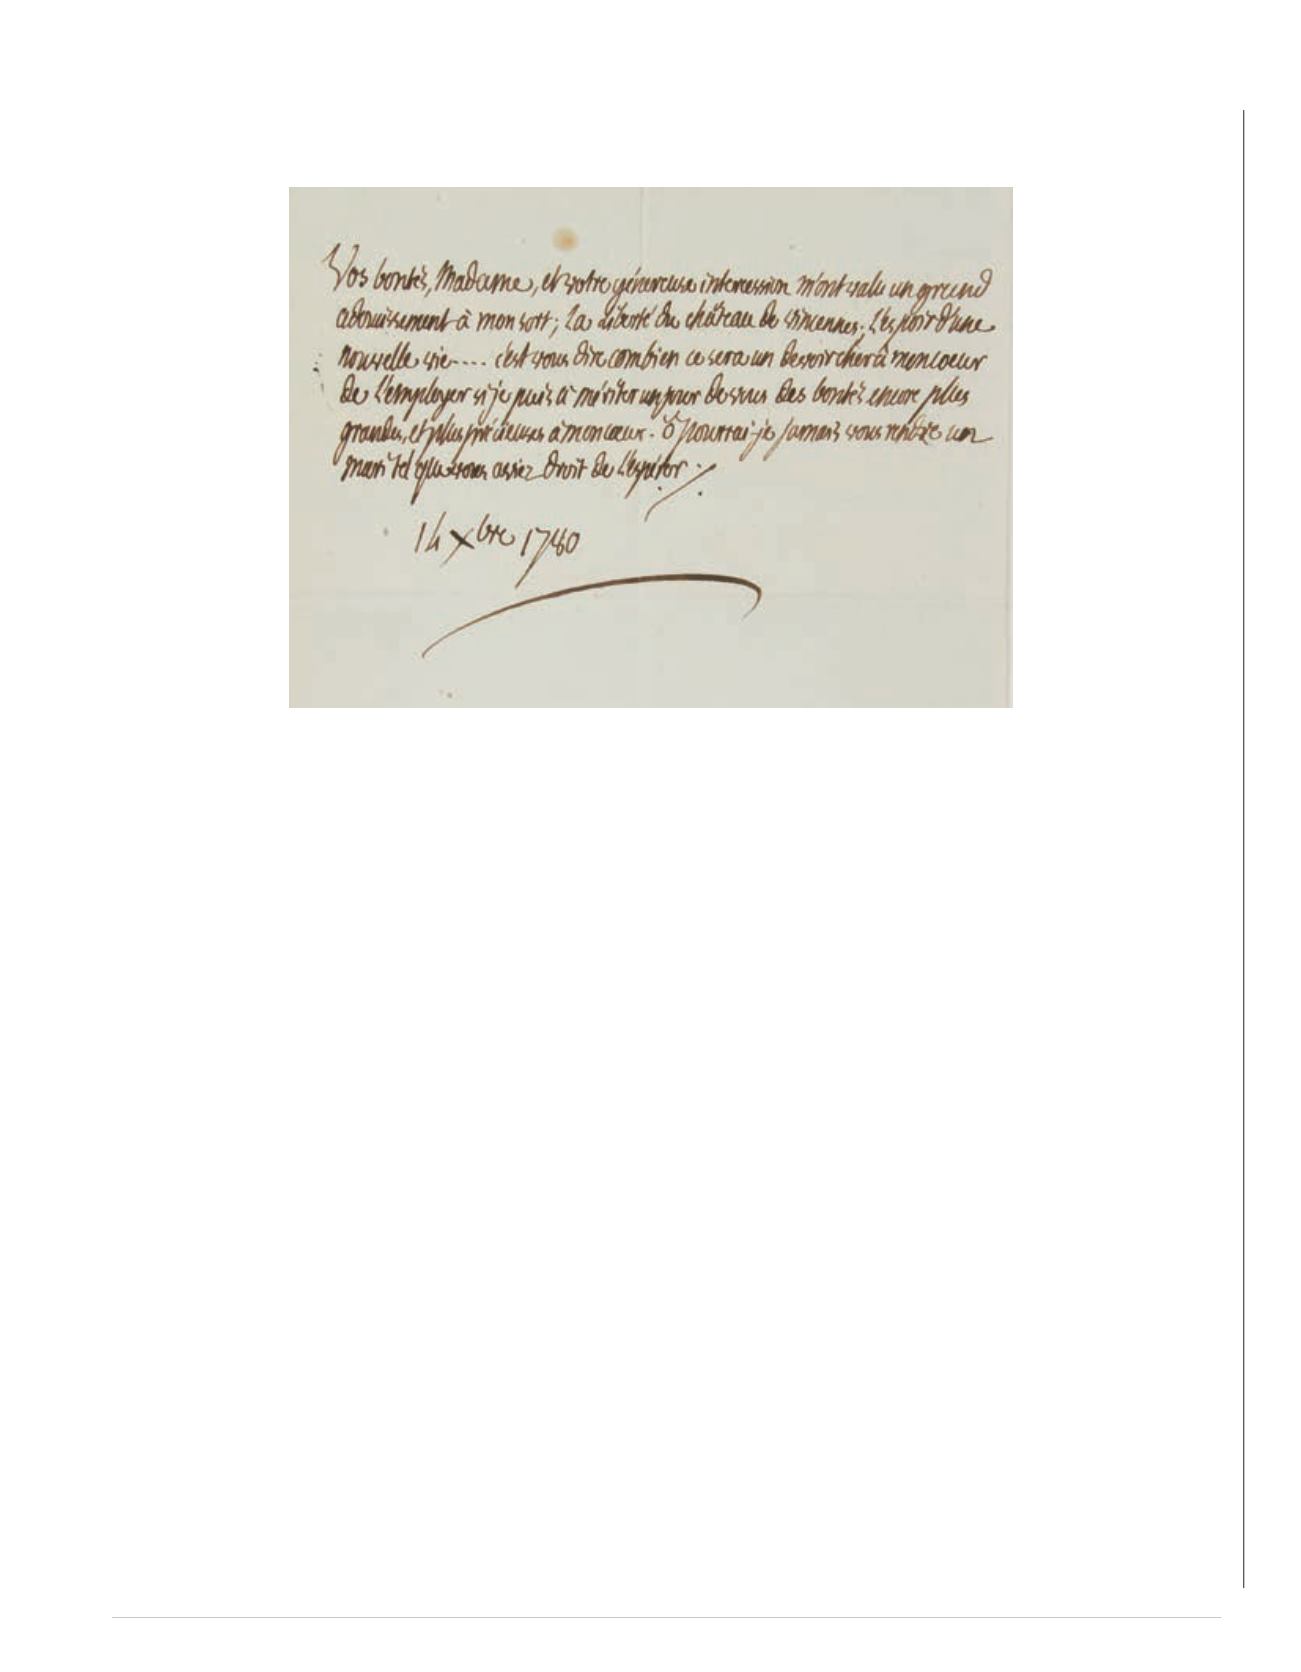 Vos bontés, Madame, et votre généreuse intercession m'ont valu un grand
adoucissement à mon sort; La Liberté du château de vincennes; L'espoir d'une
nouvelle vie.... c'est vous dire combien ce sera un devoir cher à mon coeur
de L'employer si je puis à mériter un jour de vous des bontés encore plus
grandes, et plus précieuses à mon coeur. ô pourrai-je jamais vous rendre un
mari tel que vous aviez droit de L'espérer.
14 Xbre 1780